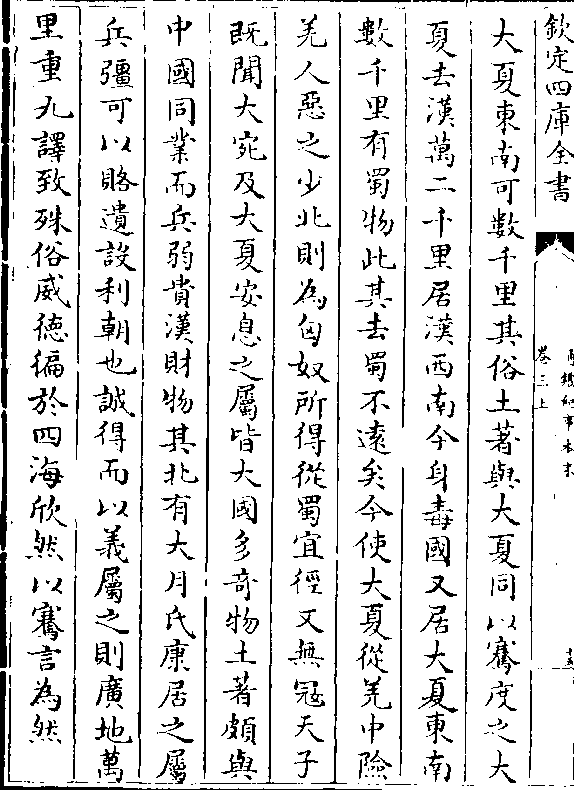 欽定四庫全書
通鑑紀事本末
卷三上
大夏東南可數千里其俗土著與大夏同以騫度之大
夏去漢萬二千里居漢西南今身毒國又居大夏東南
數千里有蜀物此其去蜀不遠矣今使大夏從羌中險
羌人惡之少北則為匈奴所得從蜀宜徑又無冦天子
既聞大宛及大夏安息之屬皆大國多竒物土著頗與
中國同業而兵弱貴漢財物其北有大月氏康居之屬
兵彊可以賂遺設利朝也誠得而以義屬之則廣地萬
里重九譯致殊俗威徳徧於四海欣然以騫言為然